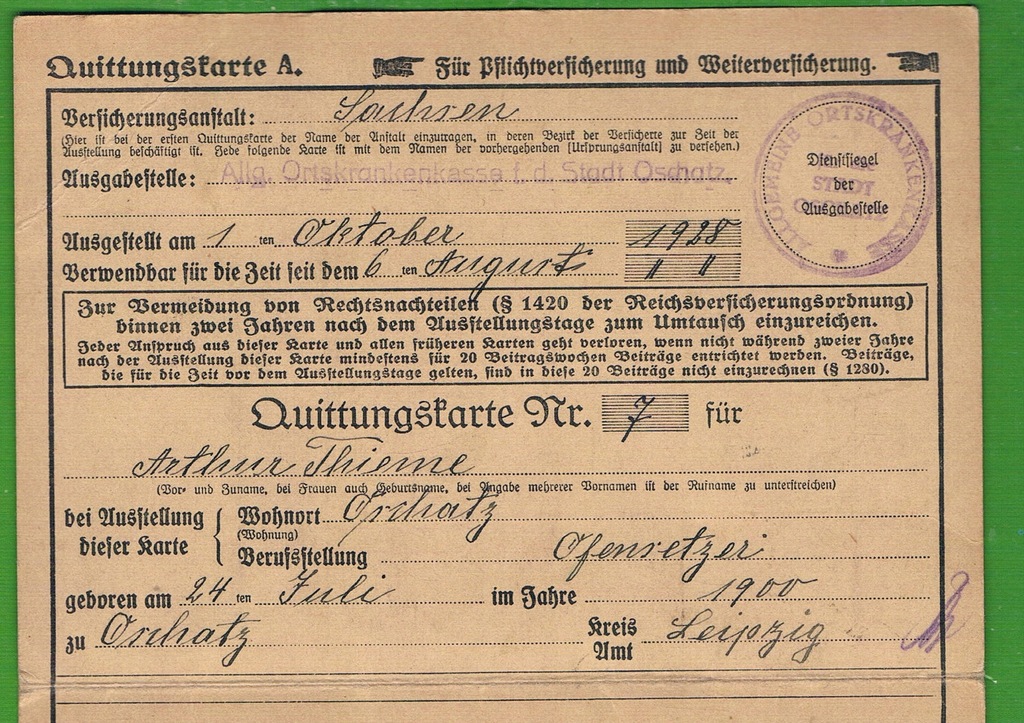 Quittungskarte A. Für Pflichtversicherung und Weiterversicherung.
Versicherungsanstalt: Sachsen
(Hier ist bei der ersten Quittungskarte der Name der Anstalt einzutragen, in deren Bezirk der Versicherte zur Zeit der
Ausstellung beschäftigt ist. Jede folgende Karte ist mit dem Namen der vorhergehenden [Ursprungsanstalt] zu versehen.)
Ausgabestelle: Allg. Ortskrankenkasse f. d. Stadt Oschatz.
ALLGEMEINE ORTSKRANKENKASSE
STADT
Dienstsiegel
der
Ausgabestelle
Ausgestellt am 1 ten Oktober 1928
Verwendbar für die Zeit seit dem 6 ten August " "
Zur Vermeidung von Rechtsnachteilen (§ 1420 der Reichsversicherungsordnung)
binnen zwei Jahren nach dem Ausstellungstage zum Umtausch einzureichen.
Jeder Anspruch aus dieser Karte und allen früheren Karten geht verloren, wenn nicht während zweier Jahre
nach der Ausstellung dieser Karte mindestens für 20 Beitragswochen Beiträge entrichtet werden. Beiträge,
die für die Zeit vor dem Ausstellungstage gelten, sind in diese 20 Beiträge nicht einzurechnen (§ 1280).
Quittungskarte Nr. 7 für
Arthur Thieme
(Vor- und Zuname, bei Frauen auch Geburtsname, bei Angabe mehrerer Vornamen ist der Rufname zu unterstreichen)
bei Ausstellung dieser Karte
Wohnort Oschatz
(Wohnung)
Berufsstellung Ofensetzer
geboren am 24 ten Juli im Jahre 1900
zu Oschatz Kreis Amt Leipzig